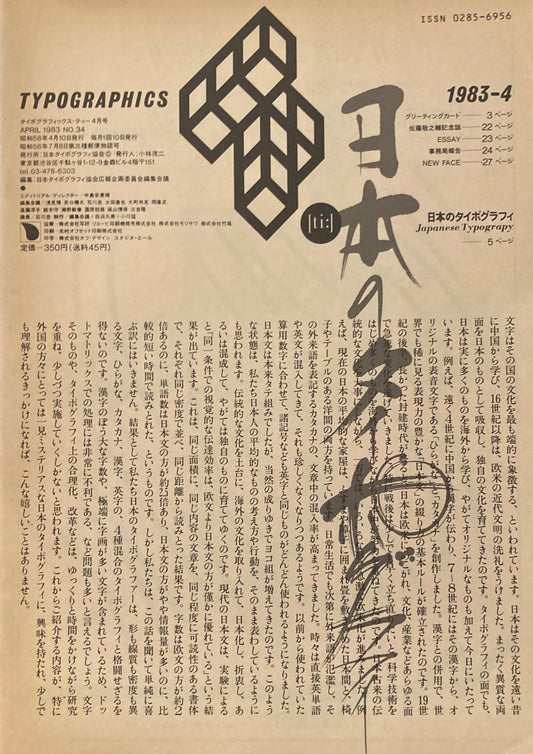 ISSN 0285-6956
TYPOGRAPHICS
タイポグラフィックス・ティー 4月号
APRIL 1983 NO.34
昭和58年4月10日発行 毎月1回10日発行
昭和56年7月8日第三種郵便物認可
発行所：日本タイポグラフィ協会© 発行人：小林茂二
東京都渋谷区千駄ヶ谷1-12-9金森ビル4階〒151
tel.03-478-6303
編集：日本タイポグラフィ協会広報企画委員会編集会議
定価―350円（送料45円）
|ti:|
1983-4
グリーティングカード――3ページ
佐藤敬之輔記念誌――22ページ
ESSAY――23ページ
事務局報告――24ページ
NEW FACE――27ページ
日本のタイポグラフィ
Japanese Typograpy
――5ページ
日本のタイポグラフィ
文字はその国の文化を最も端的に象徴する、といわれています。日本はその文化を遠い昔
に中国から学び、16世紀以降は、欧米の近代文明の洗礼をうけました。まったく異質な両
面を日本のものとして吸収し、独自の文化を育ててきたのです。タイポグラフィの面でも、
日本は実に多くのものを海外から学び、やがてオリジナルなものも加えて今日にいたって
います。例えば、遠く4世紀に中国から漢字が伝わり、7〜8世紀にはその漢字から、オ
リジナルの表音文字である「ひらがな」と「カタカナ」を創作しました。漢字との併用で、世
界でも稀に見る表現力の豊かな「日本文」への綴り方の基本ルールが確立されたのです。19世
紀の後 長かった封建時代が 日本は欧米に 文化や産業などあらゆる面
で急な 戦後は 科学技術を
はじめ 海
統的な 大事に 古来の伝
えば、現在の日本の平均的な家屋は、 に囲まれ畳を敷 た日本間と、椅
子やテーブルのある洋間の両方を持っています。日常生活でも次第に外来語が氾濫し、そ
の外来語を表記するカタカナの、文章中の混入率が高まってきました。時々は直接英単語
や英文が混入してきて、それも珍しくなくなりつつあるようです。以前から使われていた
算用数字に合わせて、諸記号なども英字と同じものがどんどん使われるようになりました。
日本文は本来タテ組みでしたが、当然の成りゆきでヨコ組が増えてきたのです。このよう
な状態は、私たち日本人の平均的なものの考え方や行動を、そのまま表わしているように
も思われます。伝統的な文化を土台に、海外の文化を取り入れて、日本化し、折衷し、あ
るいは混成して、やがては独自のものに育ててゆくのです。現代の日本文は、実験による
と「同一条件での視覚的な伝達効率は、欧文より日本文の方が僅かに優れている」という結
果が出ています。これは、同じ面積に、同じ内容の文章を、同じ程度に可読性のある書体
で、それぞれ同じ密度で並べ、同じ距離から読みとった結果です。字数は欧文の方が約2
倍あるのに、単語数は日本文の方が約2.5倍あり、日本文の方がやや情報量が多いのに、比
較的短い時間で読みとれた、というものです。しかし私たちは、この話を聞いて単純に喜
ぶ訳にはいきません。結果として私たち日本のタイポグラファーは、形も線質も密度も異
る文字、ひらがな、カタカナ、漢字、英字の、4種混合のタイポグラフィと格闘せざるを
得ないのです。漢字のぼう大な字数や、極端に字画が多い文字が含まれているため、ドッ
トマトリックスでの処理には非常に不利である、など問題も多いと言えるでしょう。文字
そのものや、タイポグラフィ上の合理化、改革などは、ゆっくりと時間をかけながら研究
を重ね、少しづつ実施していくしかないと思われます。これからご紹介する内容が、特に
外国の方々にとっては一見ミステリアスな日本のタイポグラフィに、興味を持たれ、少しで
も理解されるきっかけになれば、こんな嬉しいことはありません。